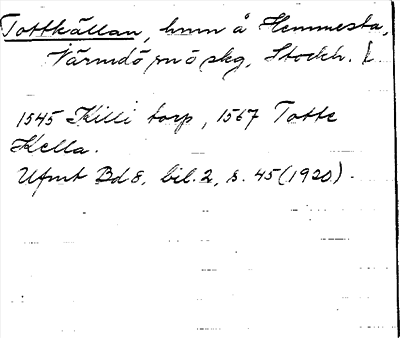 Tottkällan, hmn å Hemmesta,
Värmdö sn ö skg, Stockh. L.
1545 Killi torp, 1567 Totte
Kella.
Ufmt Bd 8, bil. 2, s. 45 (1920).